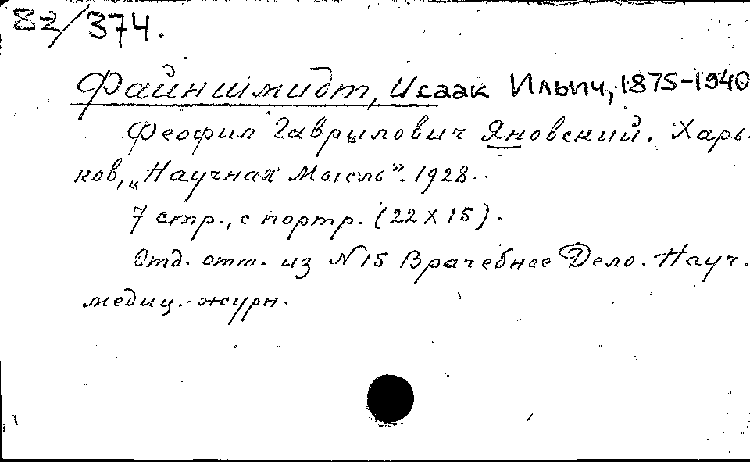 82/374.
Файншмидт, Исаак Ильич, 1875-1940
Феофил Гаврылович Яновский. Харь-
ков, „Научная Мысль". 1928.
7 стр., с портр. (22 x 15).
Отд. отт. из N 15 Врачебное Дело. Науч.
медиц. журн.